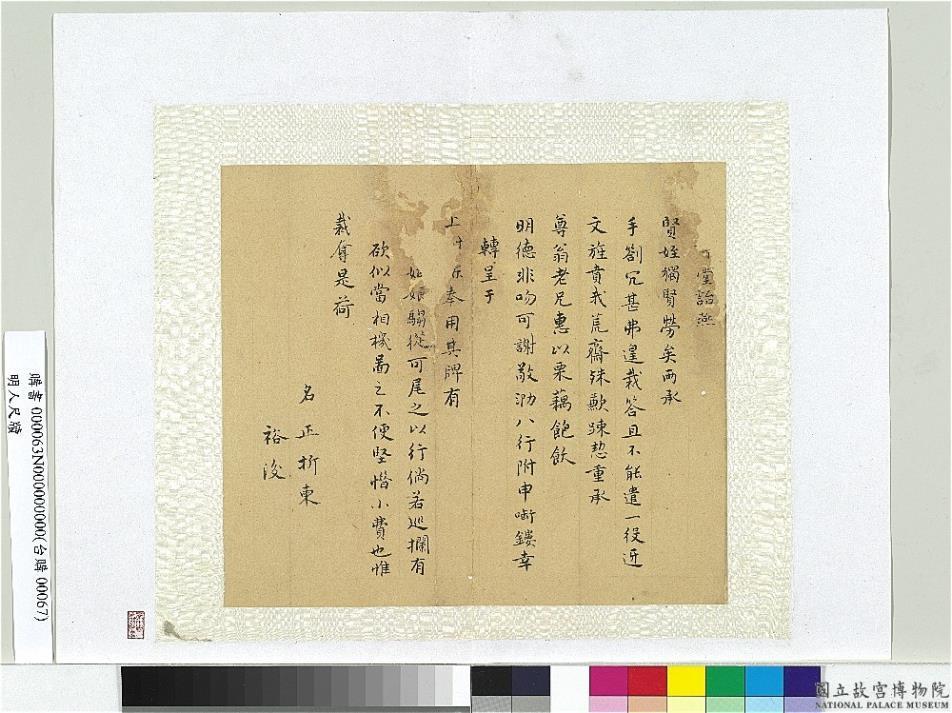 堂詒燕
賢姪獨賢勞矣兩承
手劄冗甚弗遑裁答且不能遣一役迓
文旌賁我荒齋殊歉踈愆重承
尊翁老兄惠以栗藕飽飫
明德非吻可謝敬泐八行附申嘶鏤幸
轉呈于
上 奉用其牌有
姻娘騶從可尾之以行倘若巡攔有
欲似當相機啚之不便堅惜小費也惟
裁奪是荷
名正折柬
裕後
購書 000063N000000000(台購 00067)
明人尺牘
國立故宮博物院
NATIONAL PALACE MUSEUM